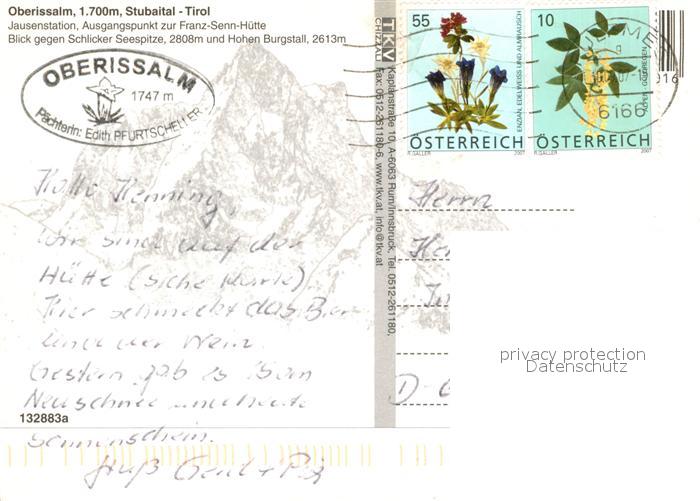 Oberissalm, 1.700m, Stubaital - Tirol
Jausenstation, Ausgangspunkt zur Franz-Senn-Hütte
Blick gegen Schlicker Seespitze, 2808m und Hohen Burgstall, 2613m
OBERISSALM
1747 m
Pächterin: Edith PFURTSCHELLER
Hallo Henning,
wir sind auf der
Hütte (siehe Karte).
Hier schmeckt das Bier
und der Wein.
Gestern gab es 15cm
Neuschnee und heute
Sonnenschein.
Gruß
132883a
TKV
Kaplanstraße 10, A-6063 Rum/Innsbruck, Tel. 0512-261180,
Fax: 0512-261180-6, www.tkv.at, info@tkv.at
55
ENZIAN, EDELWEISS UND ALMRAUSCH
ÖSTERREICH
R. GALLER 2007
10
GOLDREGEN
ÖSTERREICH
R. GALLER 2007
6166
916
Herrn
D-
privacy protection
Datenschutz